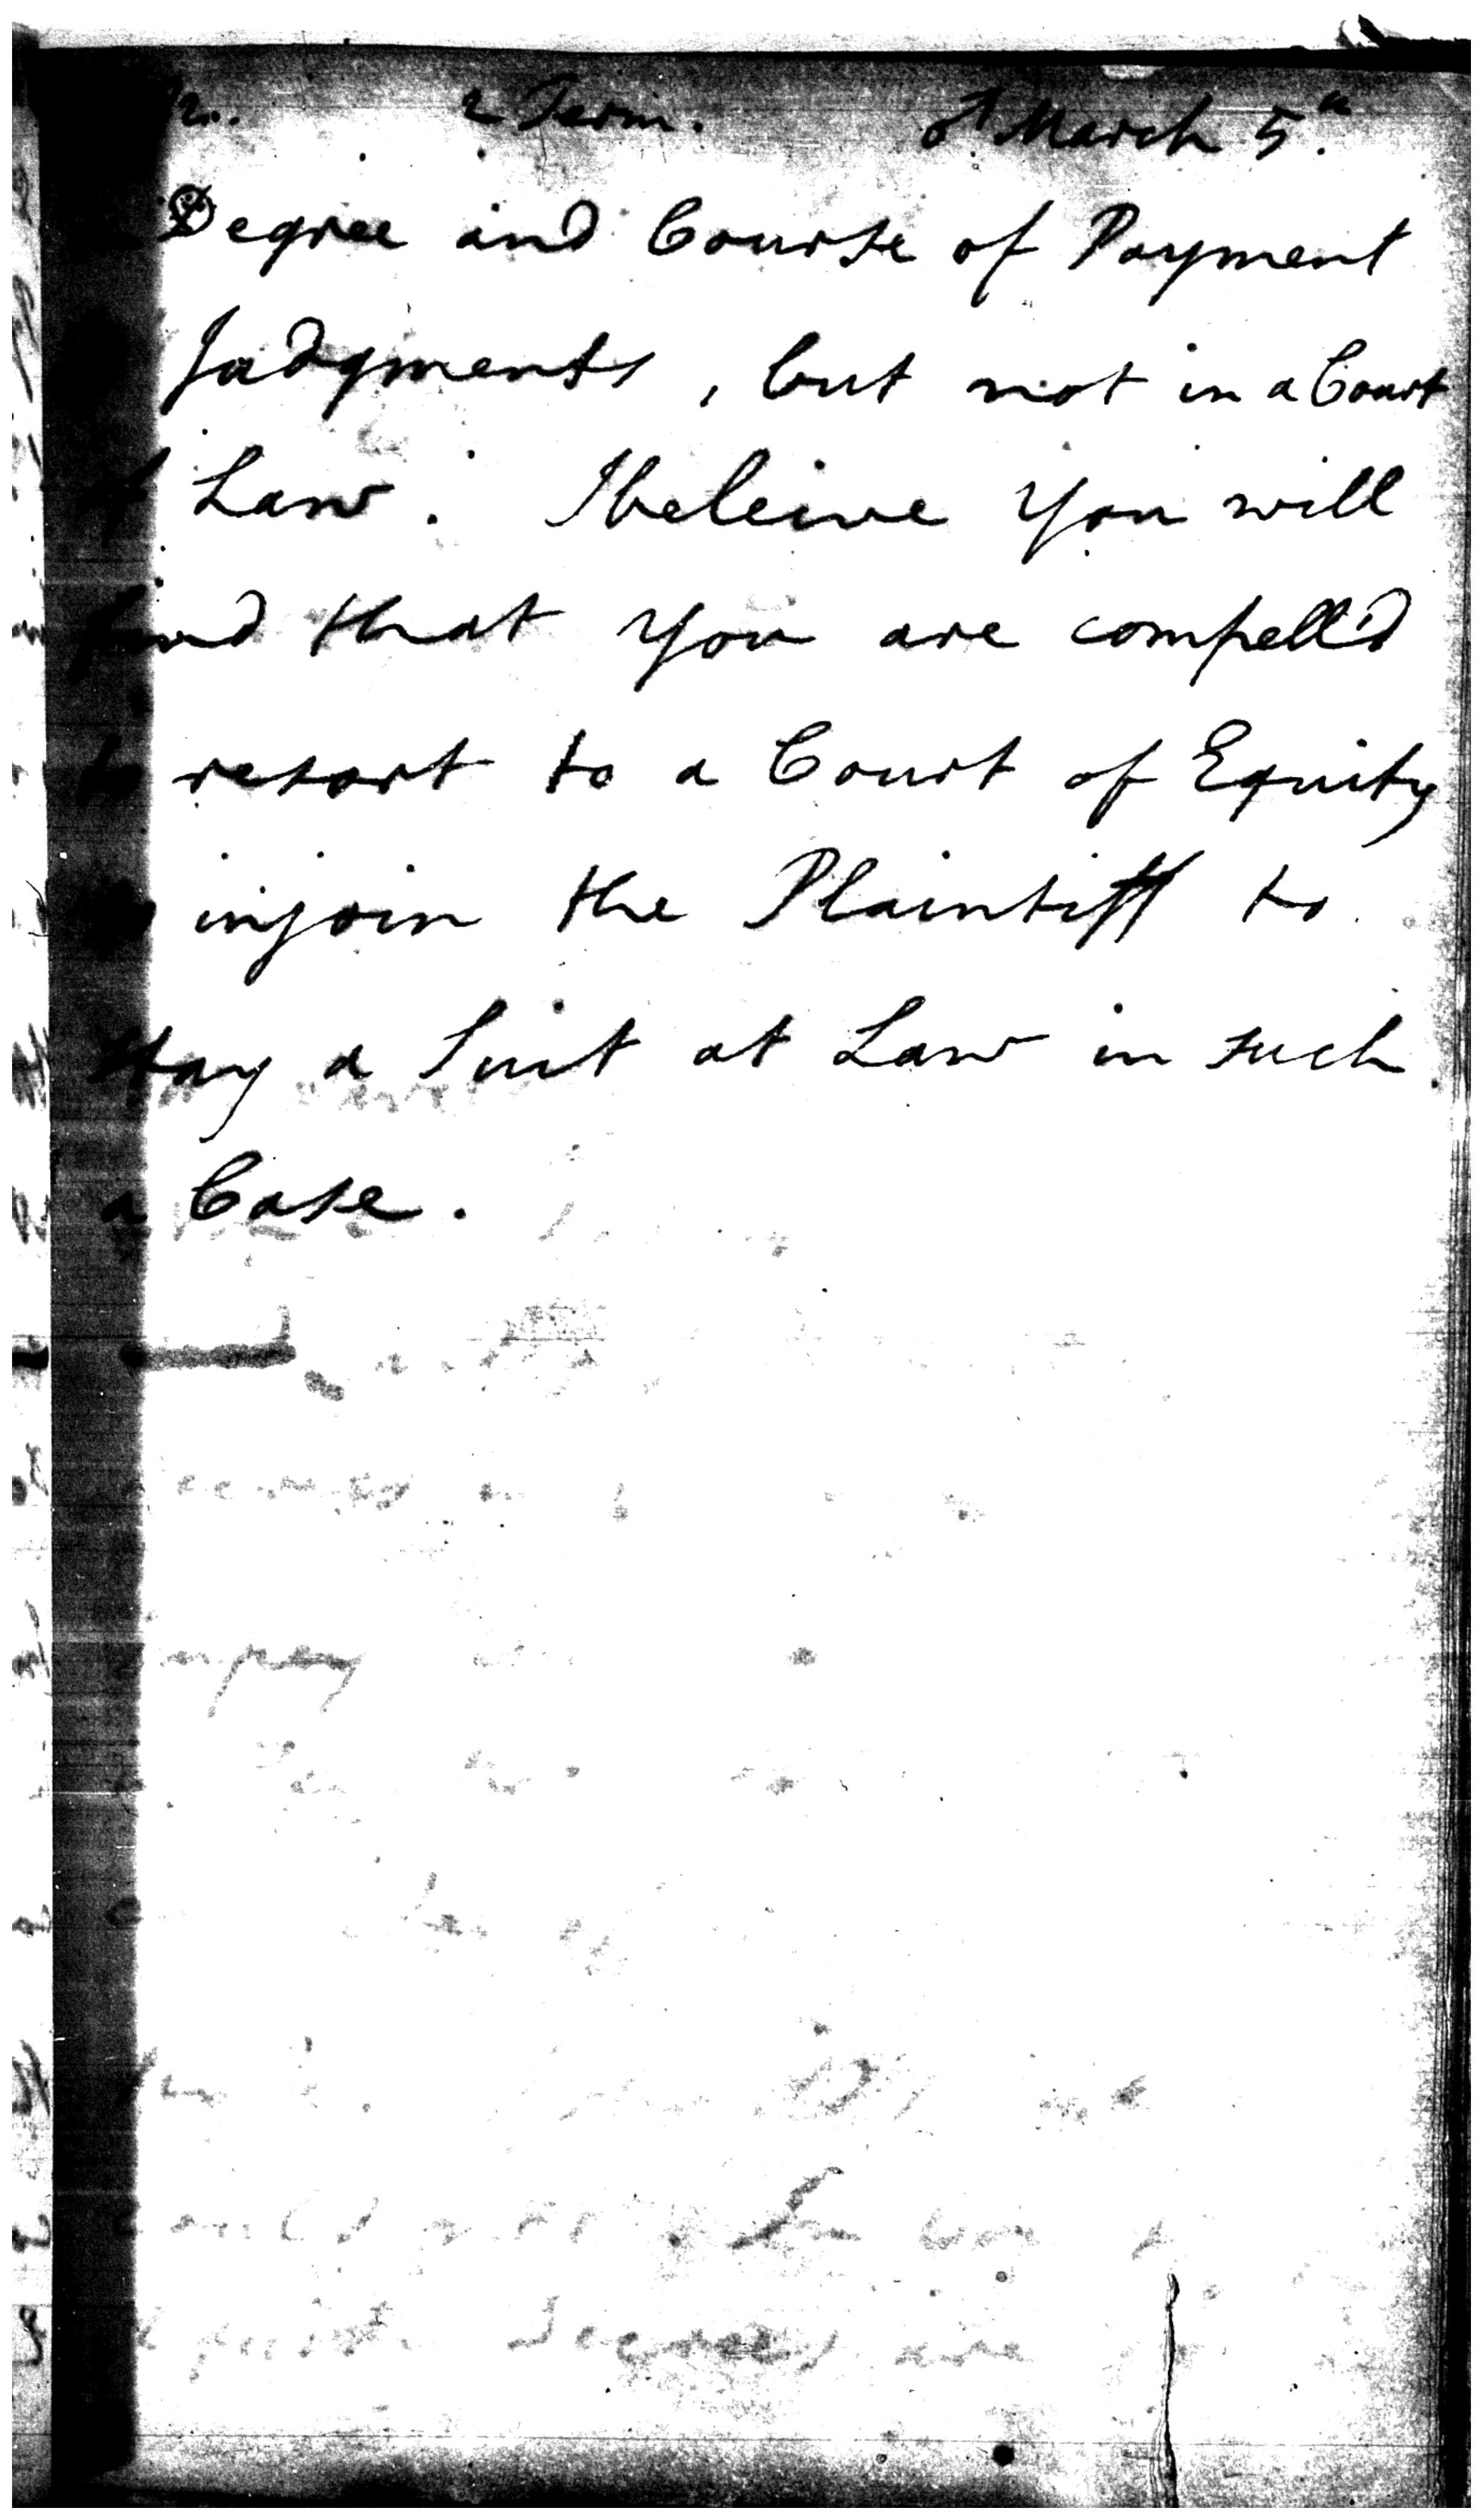 2 Term. March 5.
Degree and Course of Payment
Judgments, but not in a Court
of Law. I beleive You will
find that You are compell'd
to resort to a Court of Equity
to injoin the Plaintiff to
stay a Suit at Law in such
a Case.